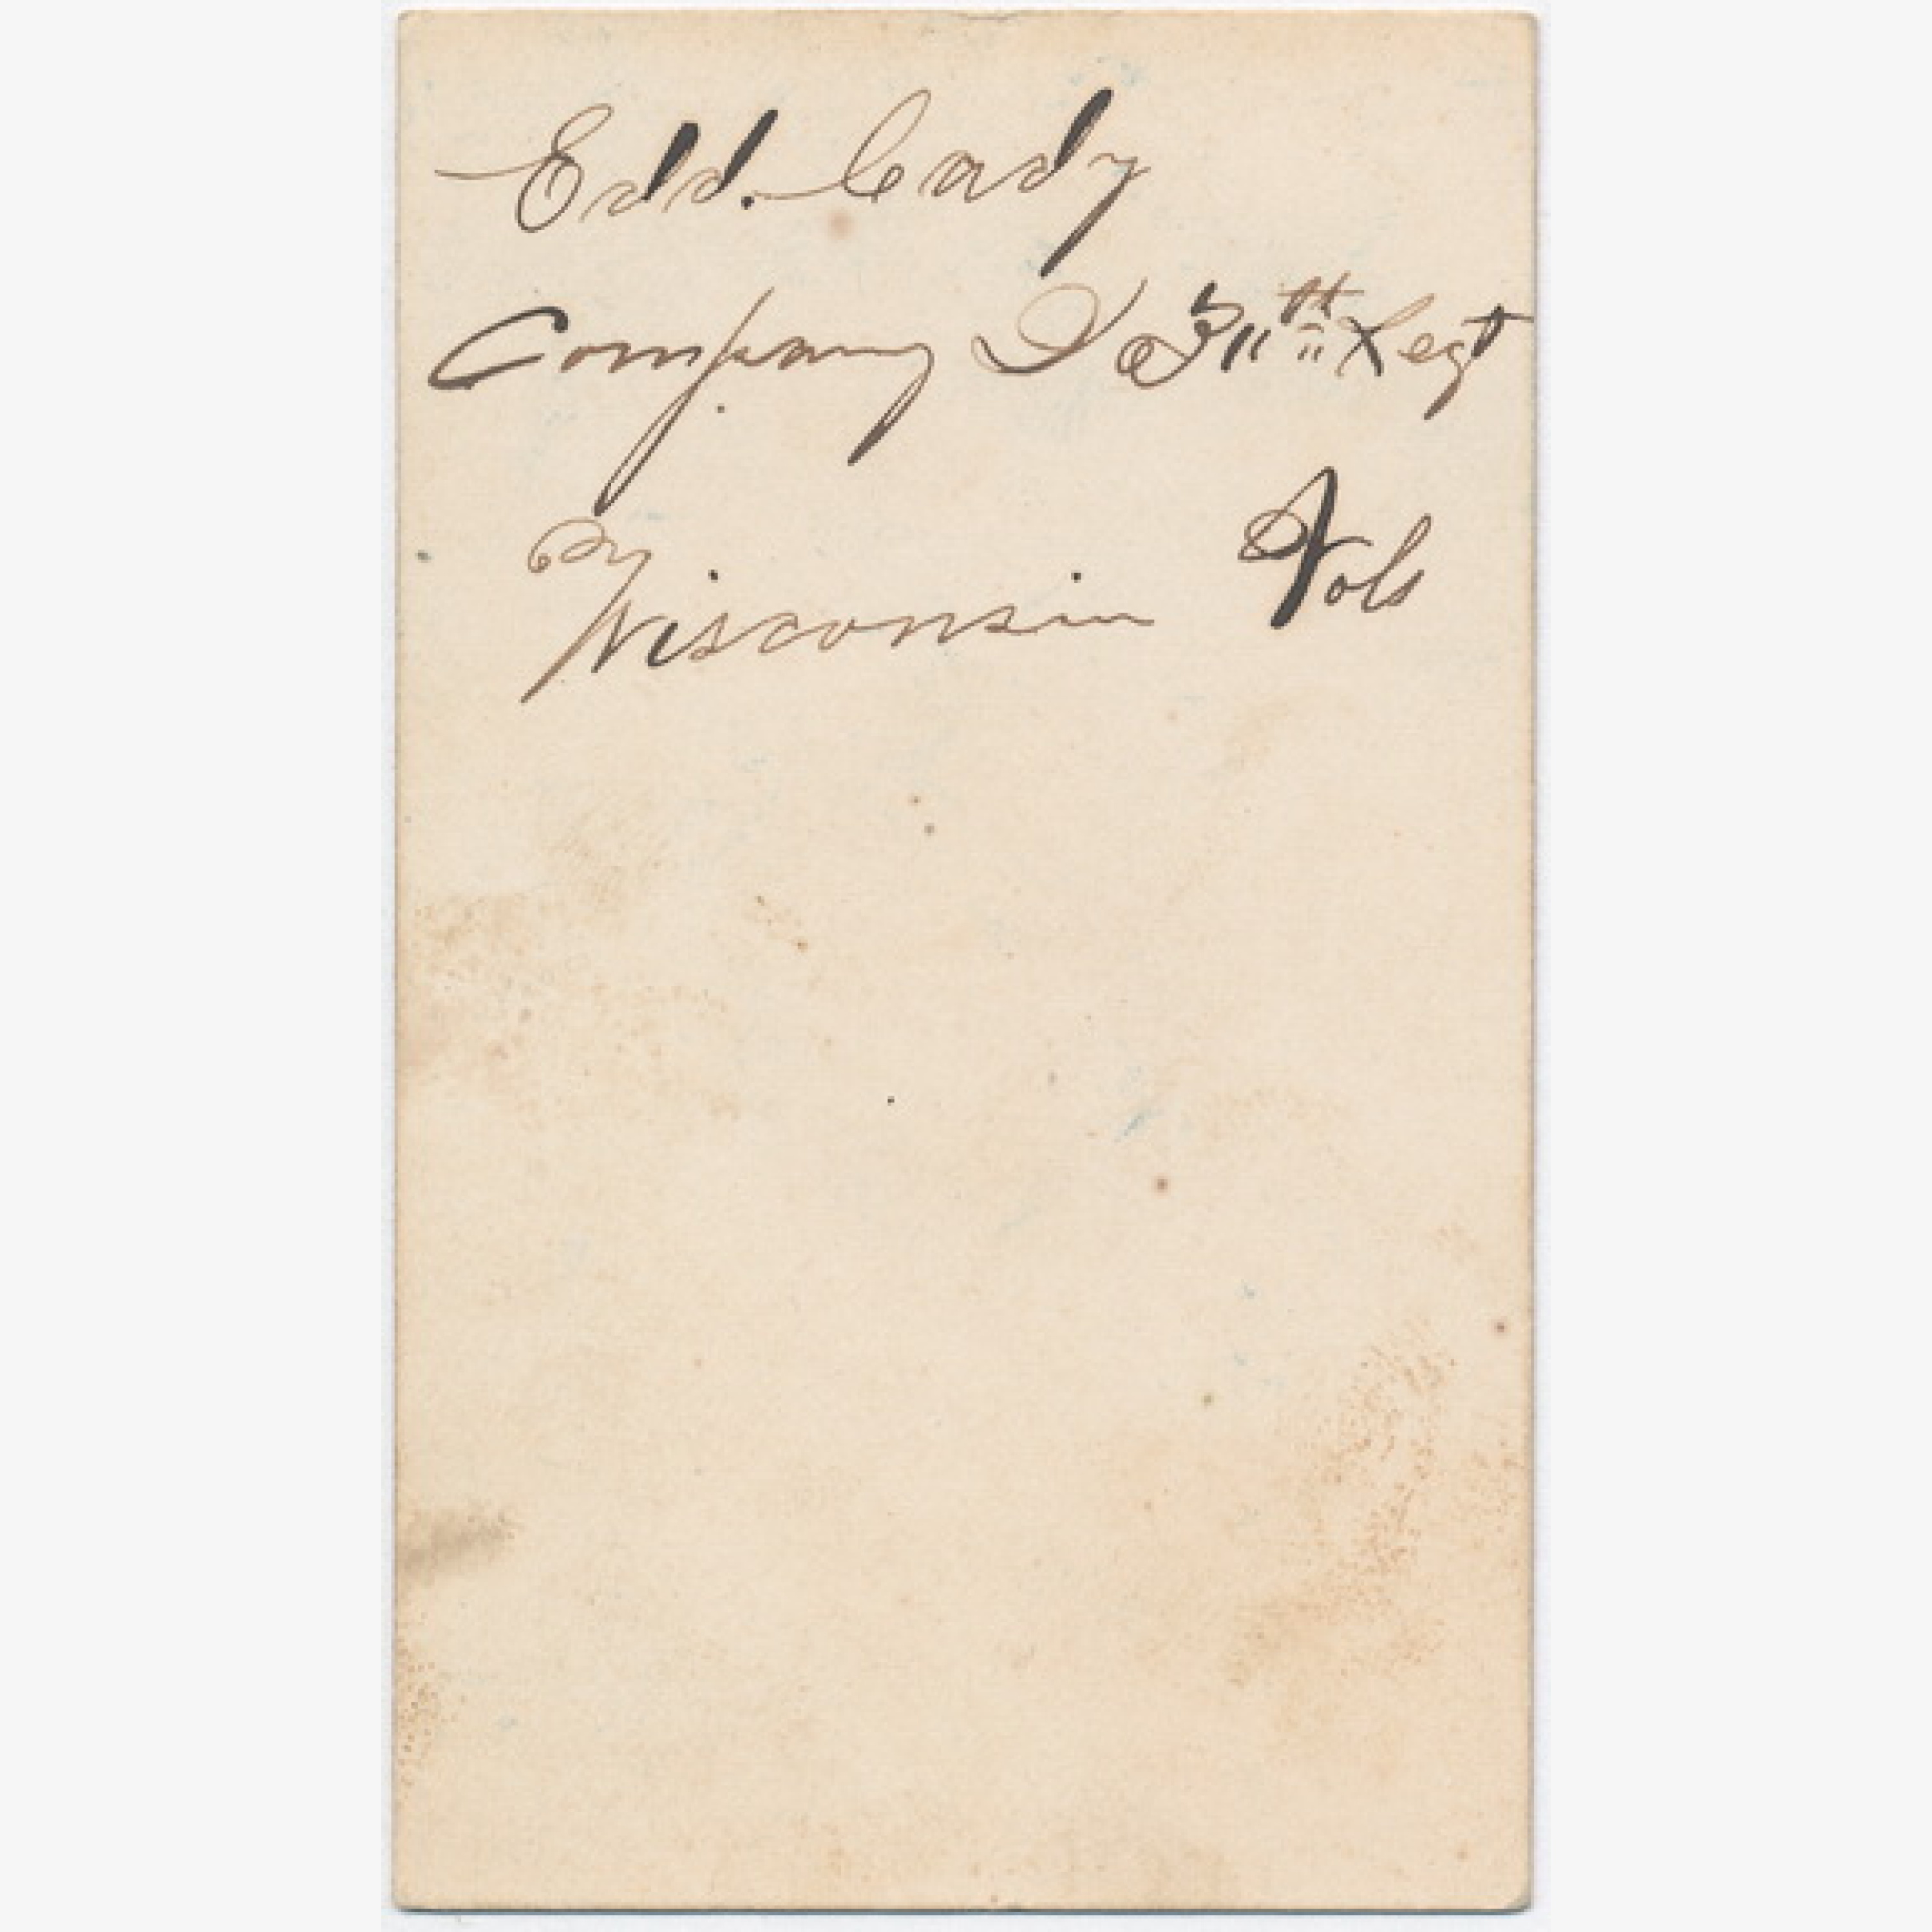 Edd. Cady
Company I 5th Regt
Wisconsin Vols